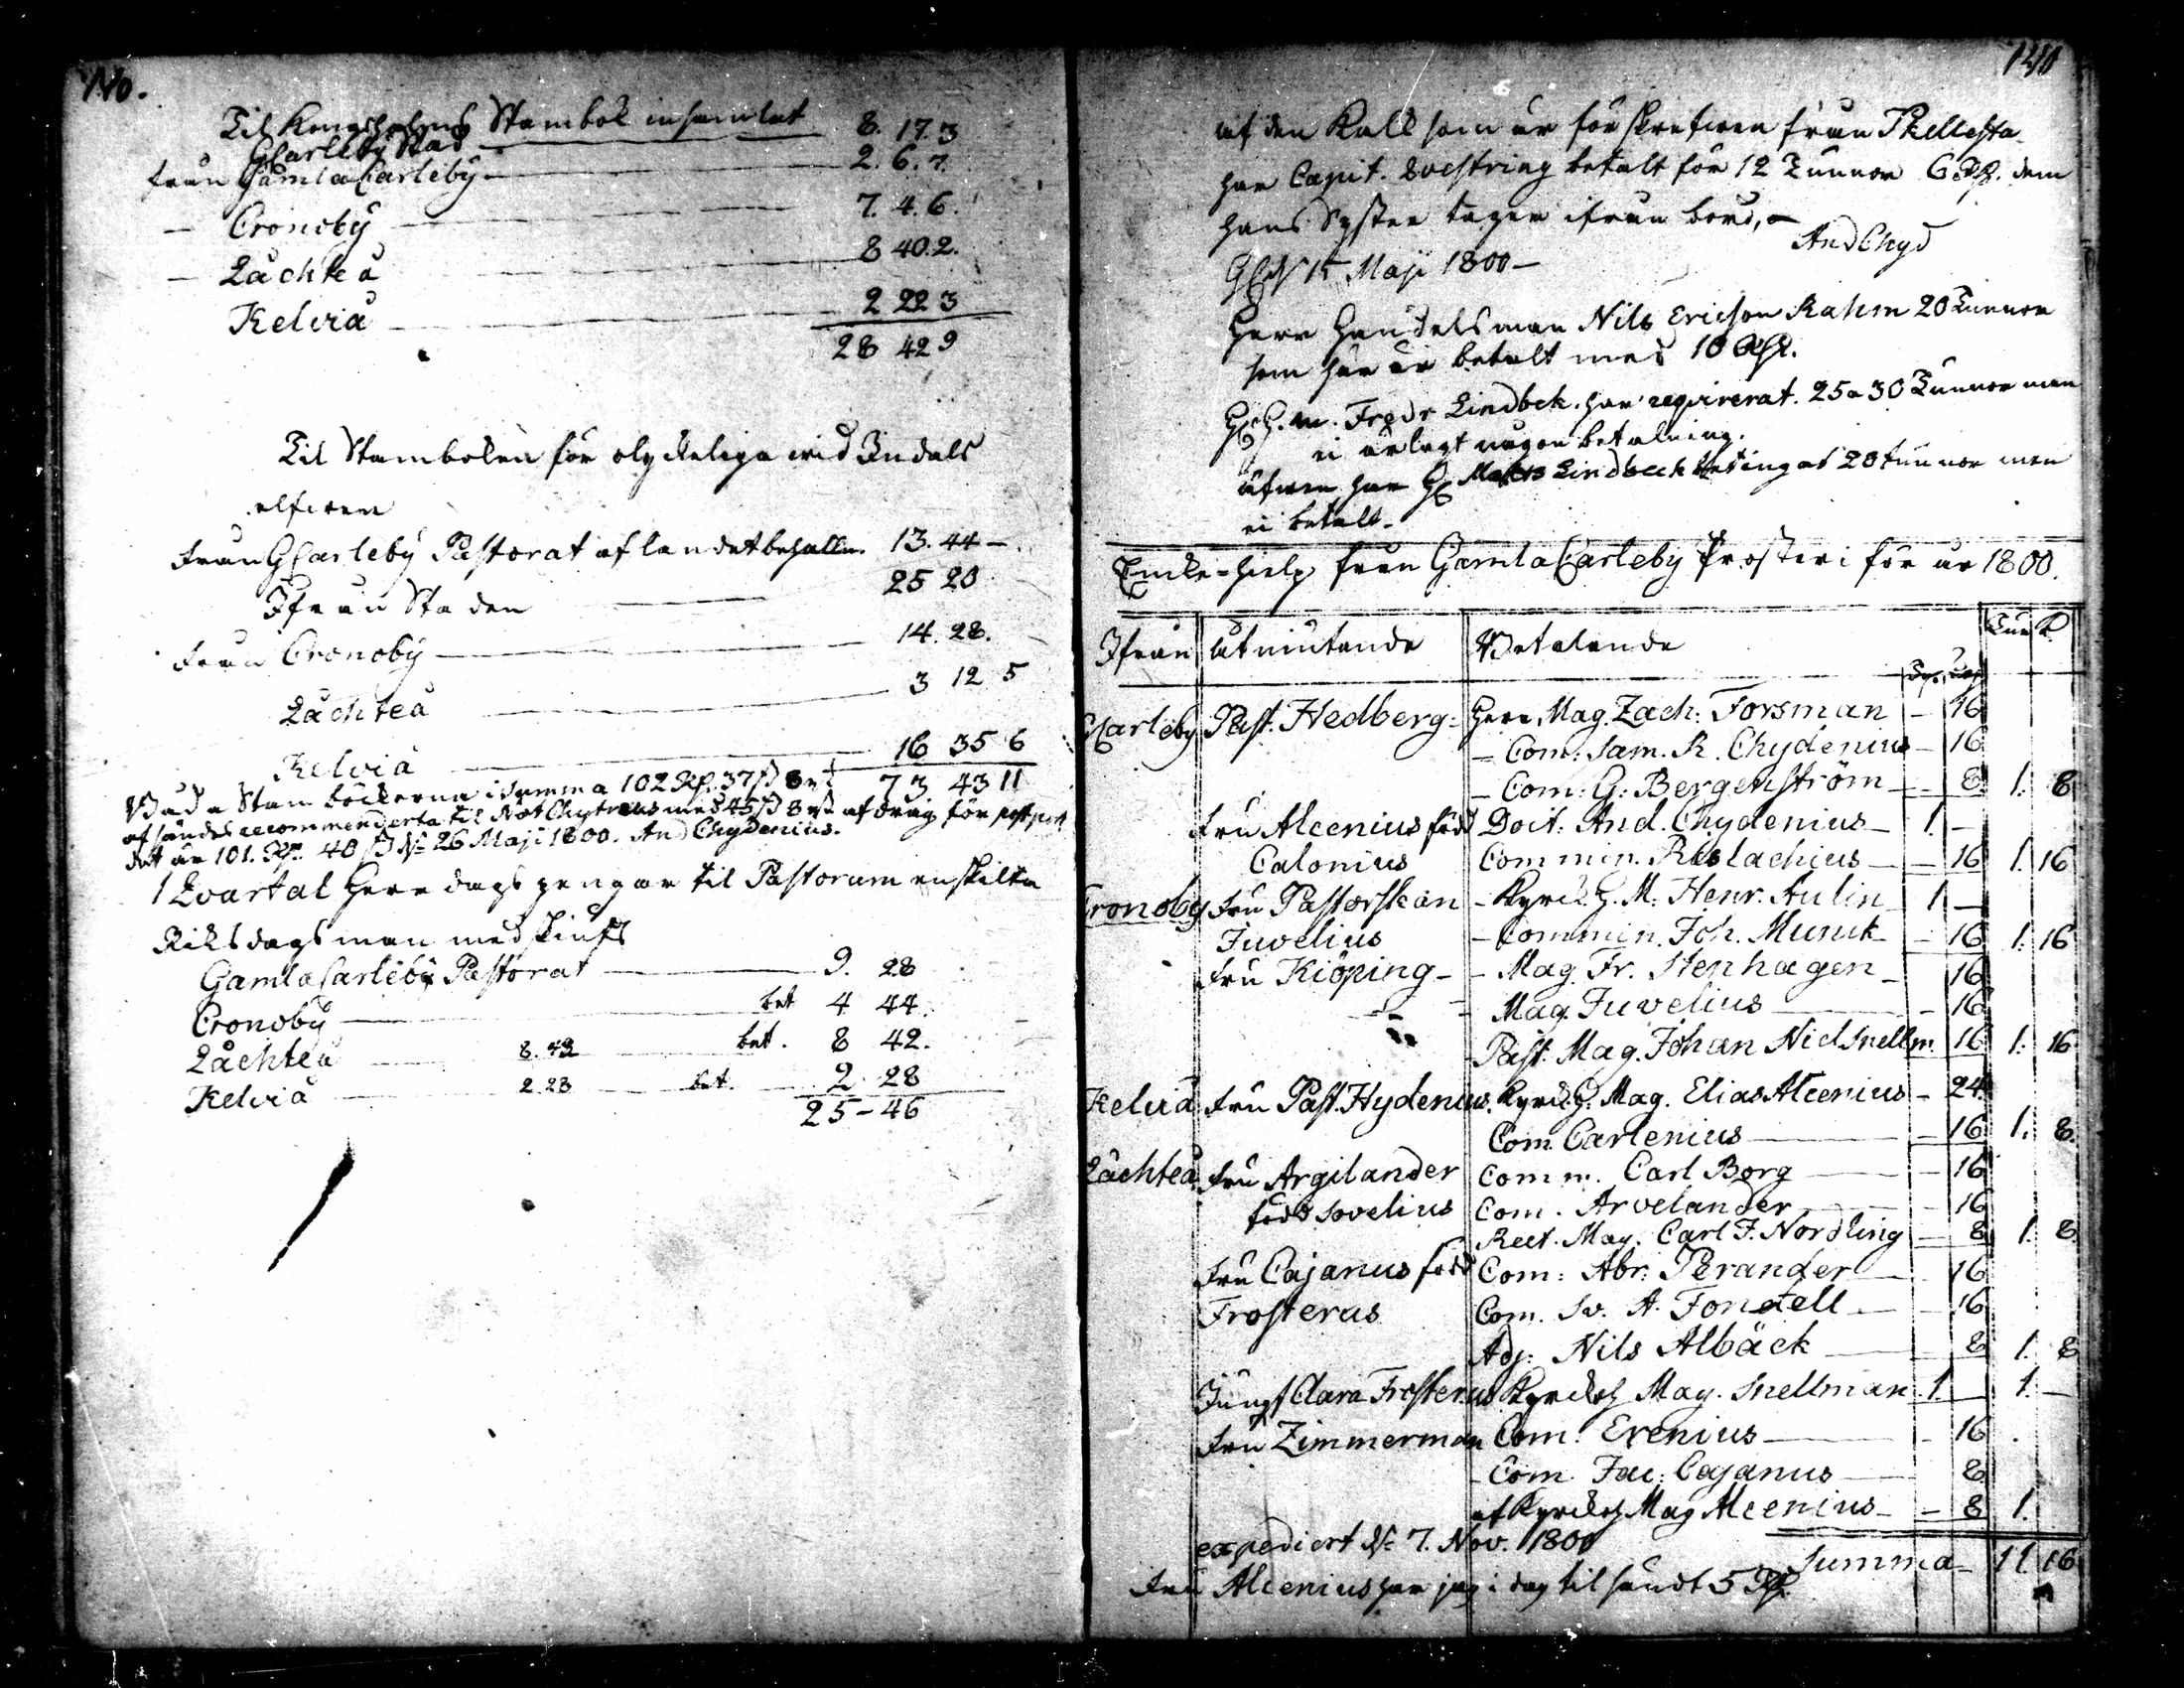 Til Kongsholms Stambok insamlat
GCarleby Stad 8. 17. 3
från Gamla Carleby 2. 6. 7.
— Cronoby — 7. 4. 6.
— Låchteå 8 40. 2.
Kelviå — 2 22 3
28 42 9
Til Stamboken för olyckeliga wid Indals
elfwen
från GCarleby Pastorat af landet behålln. 13. 44 —
Ifrån Staden — 25 20
från Cronoby — 14. 28.
Låchteå — 3 12 5
Kelviå — 16 35 6
73 43 11
Båda Stamböckerna i Summa 102 Rd. 37 ß 8 rst
afsändes recommenderta til Not Chytraeus med 45 ß 8 rst afdrag för postport
det är 101. Rd. 40 ß d. 26 Maji 1800. And Chydenius.
1 Qvartal Herredagspengar til Pastorum enskilta
Riksdagsman med skjuts
Gamla Carleby Pastorat — 9. 28
Cronoby — bet 4 44.
Låchteå — 8. 42 — bet. 8 42.
Kelviå — 2. 28 — bet. 2. 28
25 — 46
140
af den Kalk som är förskrefwen från Skellefta
har Capit. Qvestring betalt för 12 Tunnor 6 Rd. dem
hans Syster tager ifrån bord, —
And Chyd
GCby 15 Maji 1800 —
Herr Handelsman Nils Ericson Rahm 20 Tunnor
som här är betalt med 10 Rd.
H. H. m. Fredr Lindbek. har reqvirerat. 25 a 30 Tunnor men
ei ärlagt någon betalning.
äfwen har H Matts Lindbeck betingat 20 tunnor men
ei betalt.
Encke-hielp från Gamla Carleby Prosteri för år 1800.
Ifrån | Åtniutande | Betalande | Tun K.
GCarleby Past. Hedberg — Herr Mag. Zach: Forsman — 16
— Com: Sam. R. Chydenius — 16
— Com: G: Bergenström — 8 1. 8
Fru Alcenius född Doct: And. Chydenius — 1 —
Calonius Commin. Rislachius — 16 1. 16
Cronoby Fru Pastorskan — Kyrck H. M. Henr. Aulin 1 —
Juvelius — Commin. Joh. Munck — 16 1. 16
Fru Kiöping — Mag. Fr. Stenhagen — 16
— Mag. Juvelius — 16
Past. Mag. Johan Nic Snellm. 16 1. 16
Kelviå Fru Past. Hydenius. Kyrck H. Mag. Elias Alcenius — 24
Com. Carlenius — 16 1. 8.
Låchteå Fru Argilander Comm. Carl Borg — 16
född Sovelius Com. Arvelander — 16
Rect. Mag. Carl F. Nordling — 8 1. 8.
Fru Cajanus född Com: Abr: Perander — 16
Frosterus Com. Sv. A. Fondell — 16
Adj: Nils Albäck — 8 1. 8
Jungf Clara Frosterus Kyrckoh Mag. Snellman 1. — 1. —
Fru Zimmerman Com. Erenius — 16
— Com Jac: Cajanus — 8
af Kyrckoh Mag Alcenius — 8 1.
expediert d. 7. Nov. 1800
Summa — 11 16
Fru Alcenius har jag i dag til sändt 5 Rd.